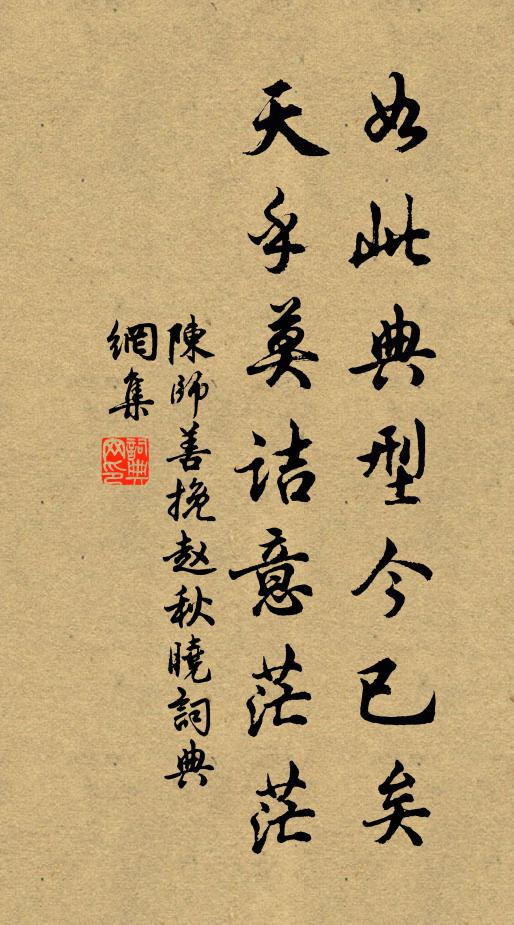 如此典型今已矣
天乎莫詰意茫茫
陳師善挽赵秋曉詞典
網集
詞典網印